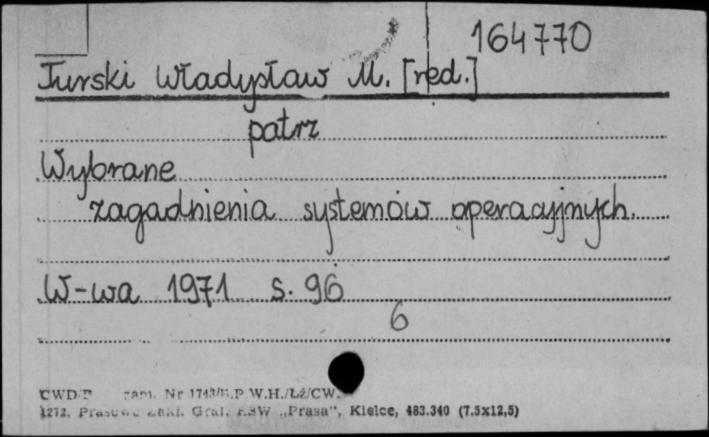 164770
Turski Władysław M. [red.]
patrz
Wybrane
zagadnienia systemów operacyjnych.
W-wa 1971 s. 96
6
CWD/P zam. Nr P W.H./Łż/CW.
1272. Prasowe Zakł. Graf. RSW „Prasa", Kielce, 483.340 (7,5x12,5)